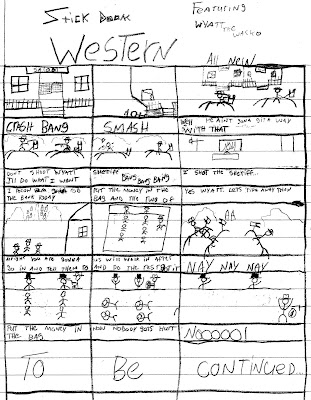 Stick Book
Featuring
Wyatt
the
Wacko
Western
All New
Saloon
Crash Bang
Smash
Well he aint gona git a way
with that
Dont shoot Wyatt
Ill do what I want
Sheriff
Bang Bang Bang
I shot the sheriff...
the bank today
Put the money in the
bag and the two of
Yes Wyatt. Lets tipa away then
AA
Alright you are gonna
go in and tell them to
us will walk in after
and do the rest got it
Nay Nay Nay
Put the money in
the bag
Now nobody gets hurt
Nooooo!
To
Be
Continued...